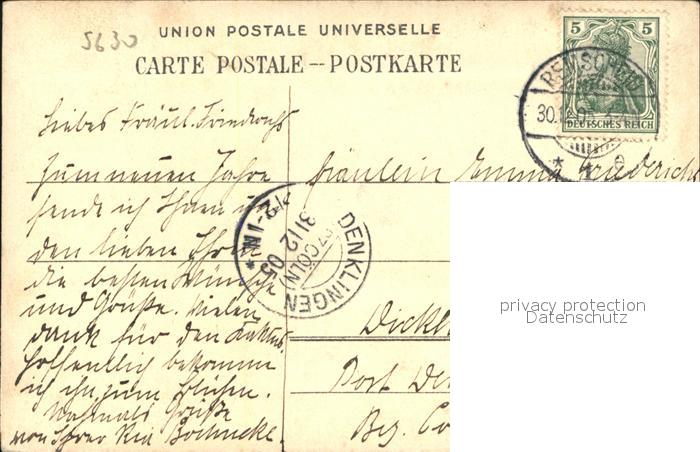 5630
UNION POSTALE UNIVERSELLE
CARTE POSTALE -- POSTKARTE
5 5
DEUTSCHES REICH
REMSCHEID
30.12.05
* * e
Liebes Fräul. Friedrichs
Zum neuen Jahre
sende ich Ihnen u.
den lieben Ihren
die besten Wünsche
und Grüße. Vielen
Dank für den Kaktus.
Hoffentlich bekomme
ich ihn zum Blühen.
Nochmals Grüße
von Ihrer
Fräulein Emma Friederichs
DENKLINGEN
31/2 05
* 1-2N
Dickh
Post Den
Bez. Co
privacy protection
Datenschutz